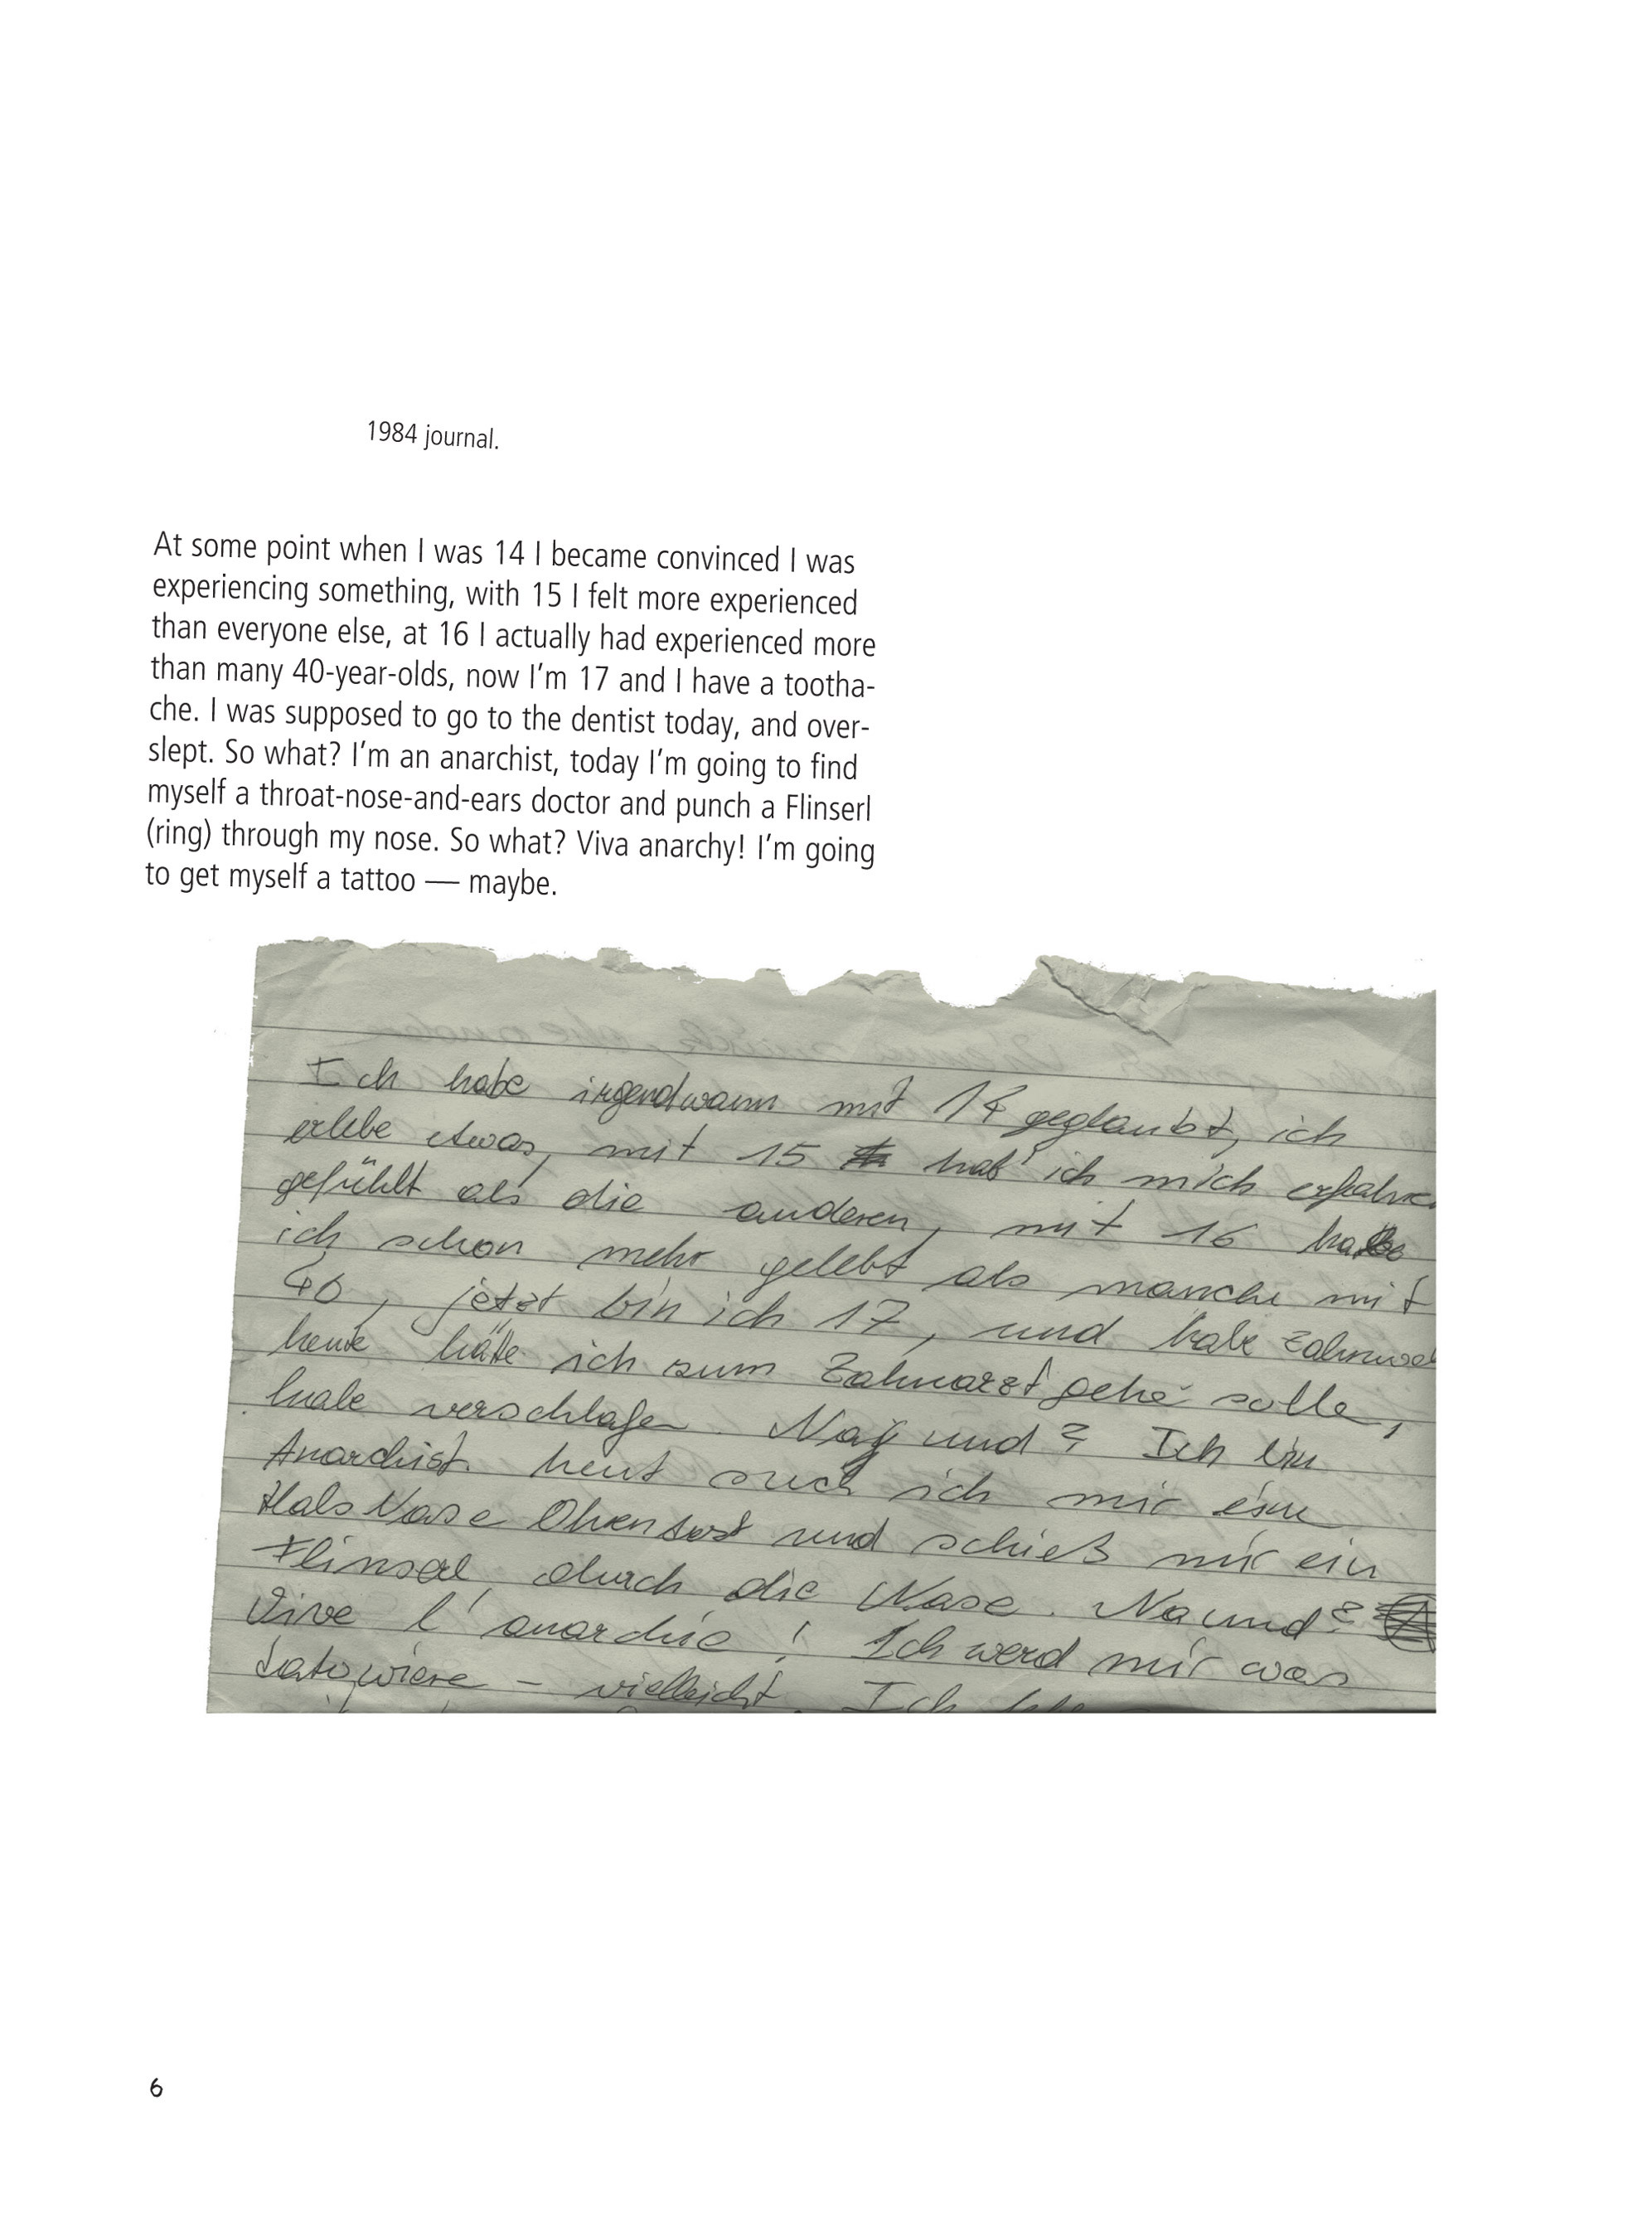 1984 journal.
At some point when I was 14 I became convinced I was
experiencing something, with 15 I felt more experienced
than everyone else, at 16 I actually had experienced more
than many 40-year-olds, now I'm 17 and I have a tootha-
che. I was supposed to go to the dentist today, and over-
slept. So what? I'm an anarchist, today I'm going to find
myself a throat-nose-and-ears doctor and punch a Flinserl
(ring) through my nose. So what? Viva anarchy! I'm going
to get myself a tattoo — maybe.
Ich habe irgendwann mit 14 geglaubt, ich
erlebe etwas, mit 15 hab' ich mich
gefühlt als die anderen, mit 16
ich schon mehr gelebt als manche mit
40, jetzt bin ich 17, und habe
heute hätte ich zum Zahnarzt gehe solle,
habe verschlafen. Na und? Ich bin
Anarchist. heut such ich mir
Hals Nase und schieß mir ein
Flinserl durch die Nase. Na und?
Vive l'anarchie! Ich werd mir was
tatowiere - vielleicht. Ich
6